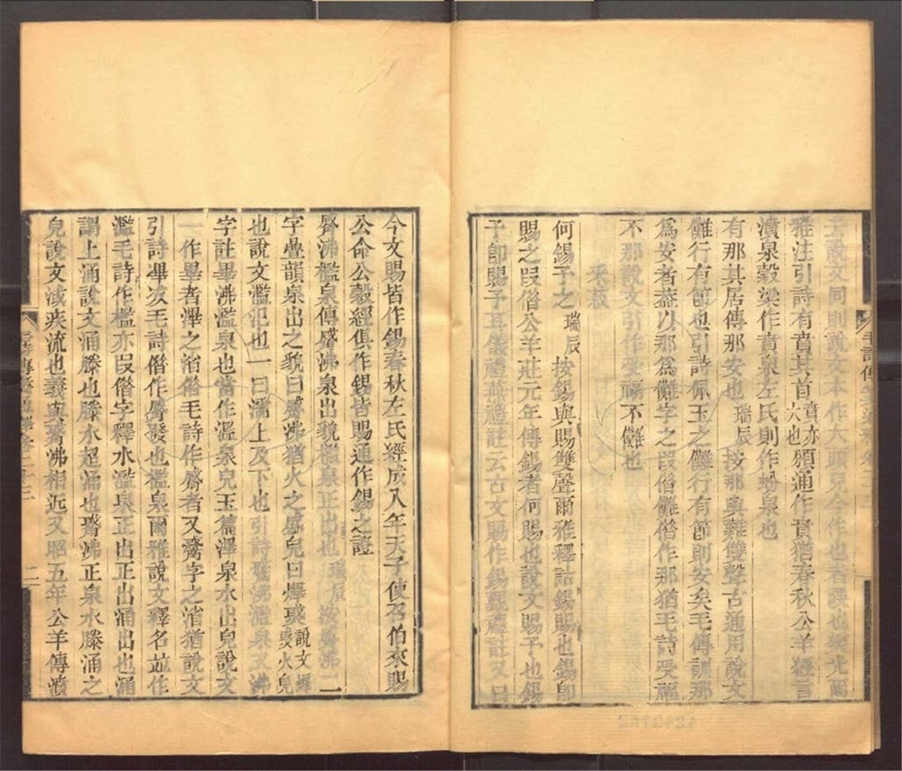 雅注引詩有賁其首賁亦大也頒通作賁猶春秋公羊經言
濆泉穀梁作賁泉左氏則作蚡泉也
有那其居傳那安也瑞辰按那與難雙聲古通用說文
儺行有節也引詩佩玉之儺行有節則安矣毛傳訓那
為安者葢以那為儺字之叚借儺借作那猶毛詩受福
不那說文引作受福不儺也
采菽
何錫予之瑞辰按錫與賜雙聲爾雅釋詁錫賜也錫卽
賜之叚借公羊莊元年傳錫者何賜也說文賜予也錫
予卽賜予耳儀禮燕禮註云古文賜作錫覲禮註又曰
今文賜皆作錫春秋左氏經成八年天子使召伯來賜
公命公穀經俱作錫皆賜通作錫之證
觱沸檻泉傳觱沸泉出貌檻泉正出也瑞辰按觱沸二
字疊韻泉出之貌曰觱沸猶火之盛皃曰熚𤒓說文熚𤒓火皃
也說文濫氾也一曰濡上及下也引詩觱沸濫泉又沸
字註畢沸濫泉也當作濫泉皃玉篇滭泉水出皃說文
一作畢者滭之渻俗毛詩作觱者又𩰲字之渻猶說文
引詩畢冹毛詩借作觱發也檻泉爾雅說文釋名竝作
濫毛詩作檻亦叚借字釋水濫泉正出正出涌出也涌
謂上涌說文涌滕也滕水超涌也觱沸正泉水滕涌之
皃說文淢疾流也義與觱沸相近又昭五年公羊傳濆